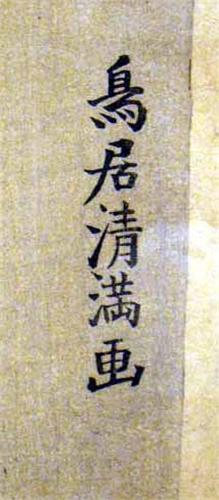 鳥居清満画